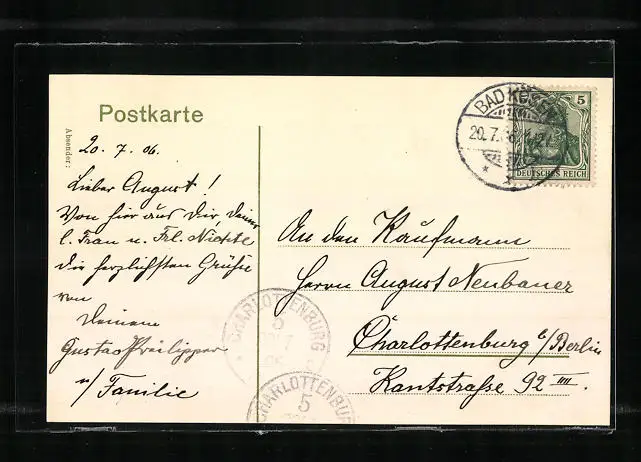 Postkarte
Absender:
20. 7. 06.
Lieber August!
Von hier aus Dir, Deiner
l. Frau u. Frl. Nichte
die herzlichsten Grüße
von
Deinem
Gustav
u/ Familie
BAD KÖSEN
20.7.06
5
DEUTSCHES REICH
An den Kaufmann
Herrn August Neubauer
Charlottenburg b/Berlin
Kantstraße 92 IIII.
CHARLOTTENBURG
5
CHARLOTTENBURG
5